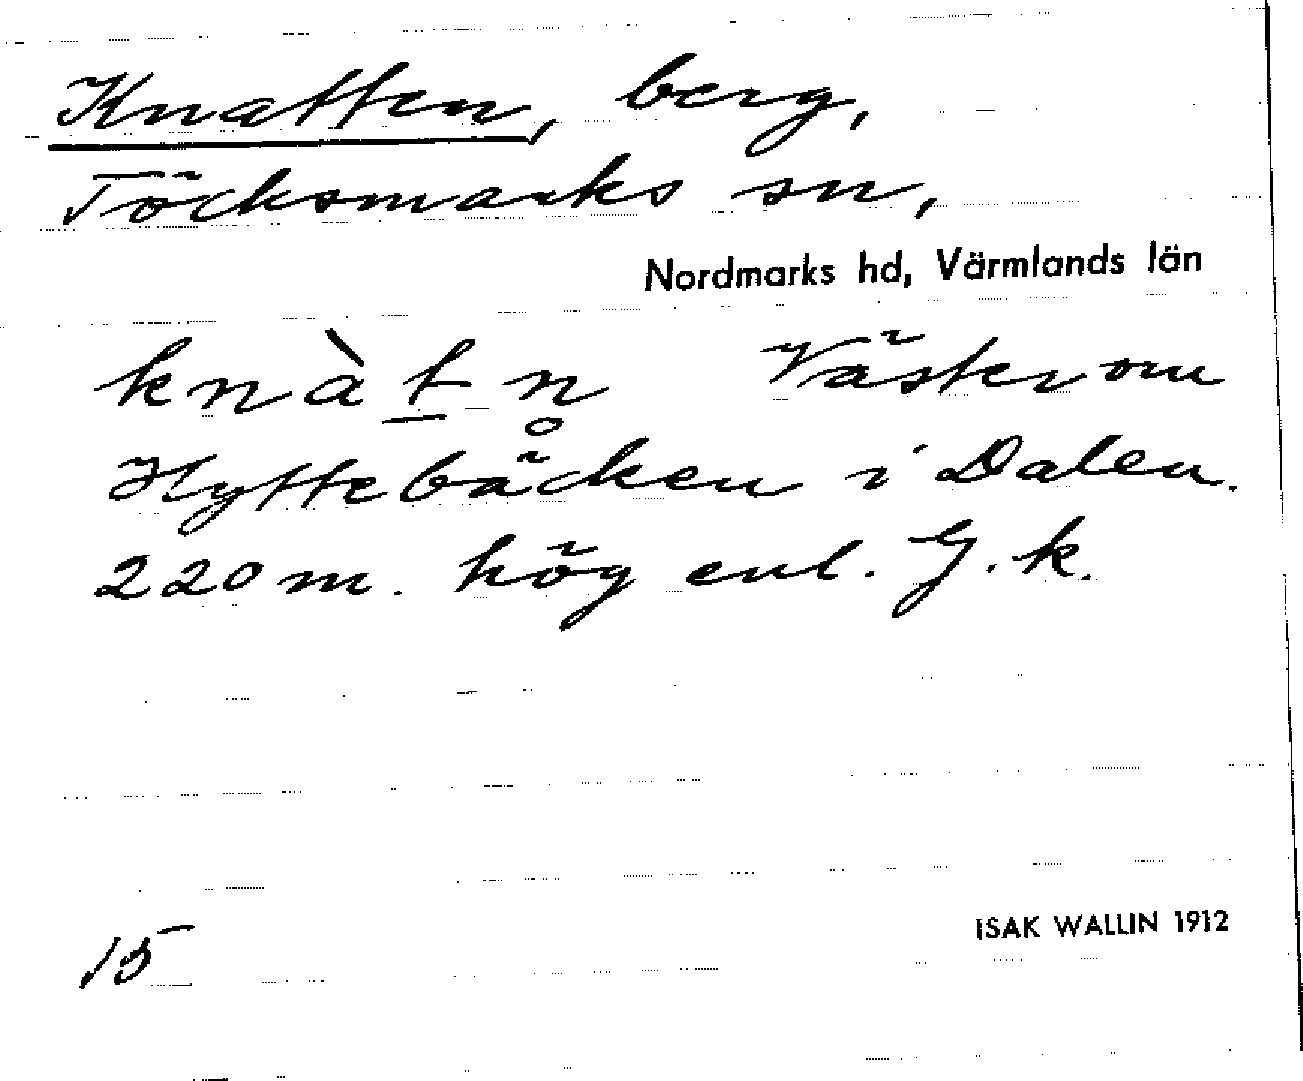 Knatten, berg,
Töcksmarks sn,
Nordmarks hd, Värmlands län
knàt̠n̥ Väster om
Hyttebäcken i Dalen.
220 m. hög enl. G. k.
15
ISAK WALLIN 1912